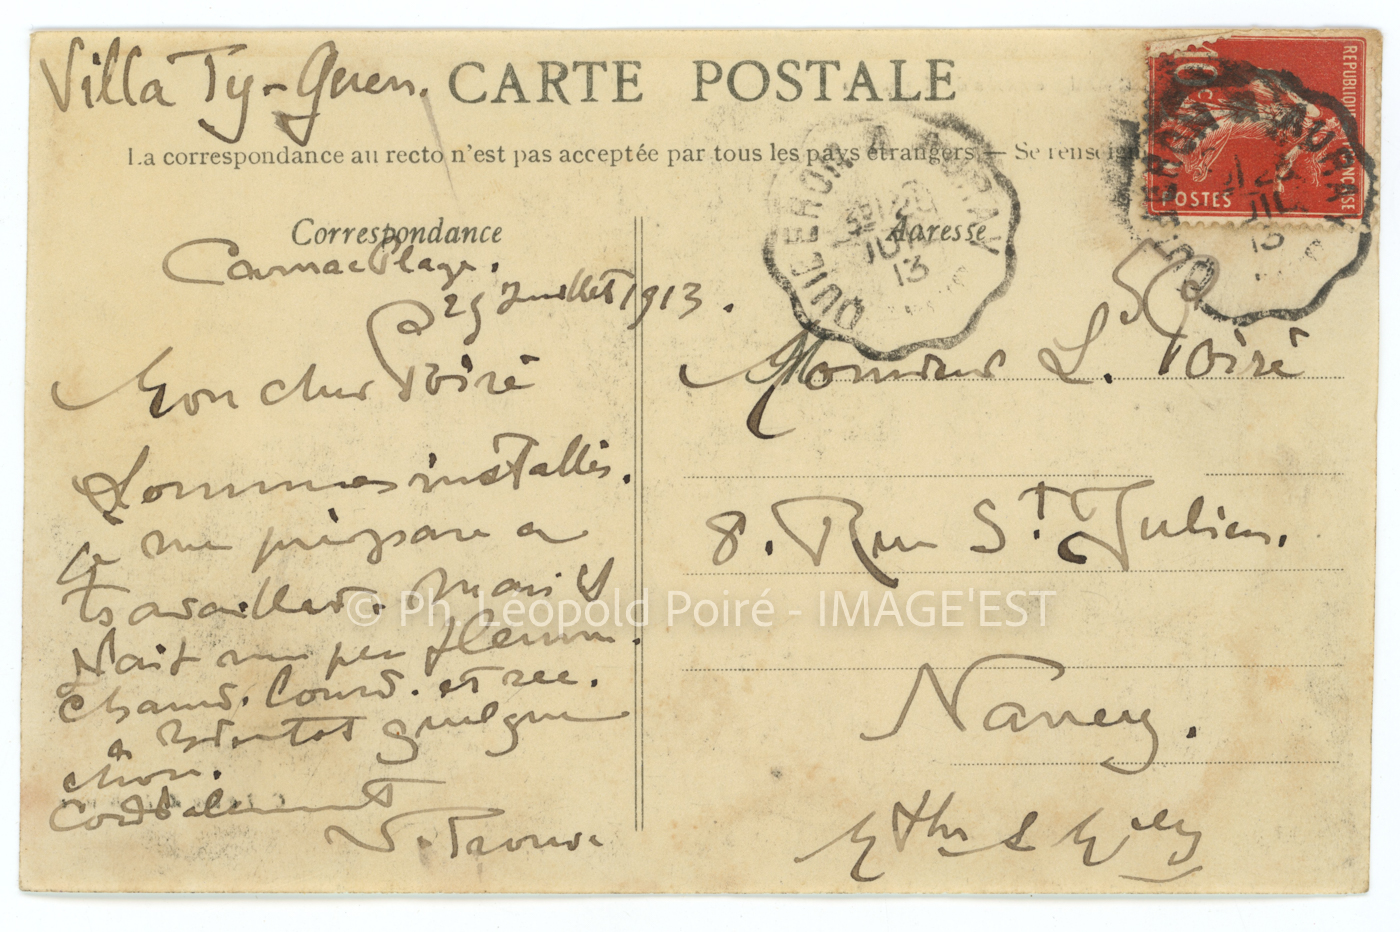 Villa Ty-Guen.
CARTE POSTALE
La correspondance au recto n'est pas acceptée par tous les pays étrangers — Se renseign
REPUBLIQUE FRANÇAISE
10c
POSTES
QUIBERON A AURAY
JUIL
13
QUIBERON A AURAY
JUIL
13
Correspondance
Adresse
Carnac Plage.
25 Juillet 1913.
Mon cher Poiré
Monsieur L. Poiré
Sommes installés.
Je me prépare a
travailler. Mais il
fait un peu
chaud. lourd. et
a bientot quelque
chose.
Cordialement
8. Rue St. Julien.
Nancy.
Mthe & Mlle
© Ph. Léopold Poiré - IMAGE'EST